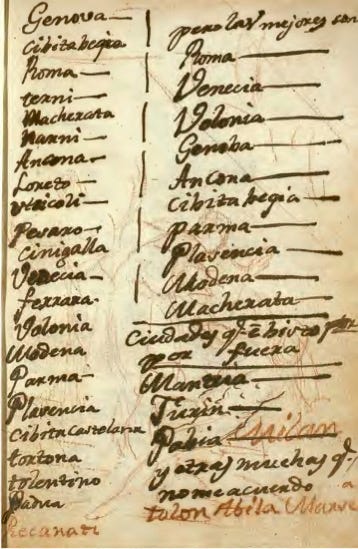 Genova
Cibitabegia
Roma
terni
Macherata
Narni
Ancona
Loreto
Utricoli
Pesaro
Cinigalla
Venecia
ferrara
Volonia
Modena
Parma
Plavencia
Cibita castelana
tortona
tolentino
Padua
Recanati
pero las mejores son
Roma
Venecia
Volonia
Genoba
Ancona
Cibitabegia
parma
Plavencia
Modena
Macherata
Ciudades q.e e bisto
por fuera
Mantua
Turin
Pabia Milan
y otras muchas q.e
no me acuerdo a
tolon Abila Marse